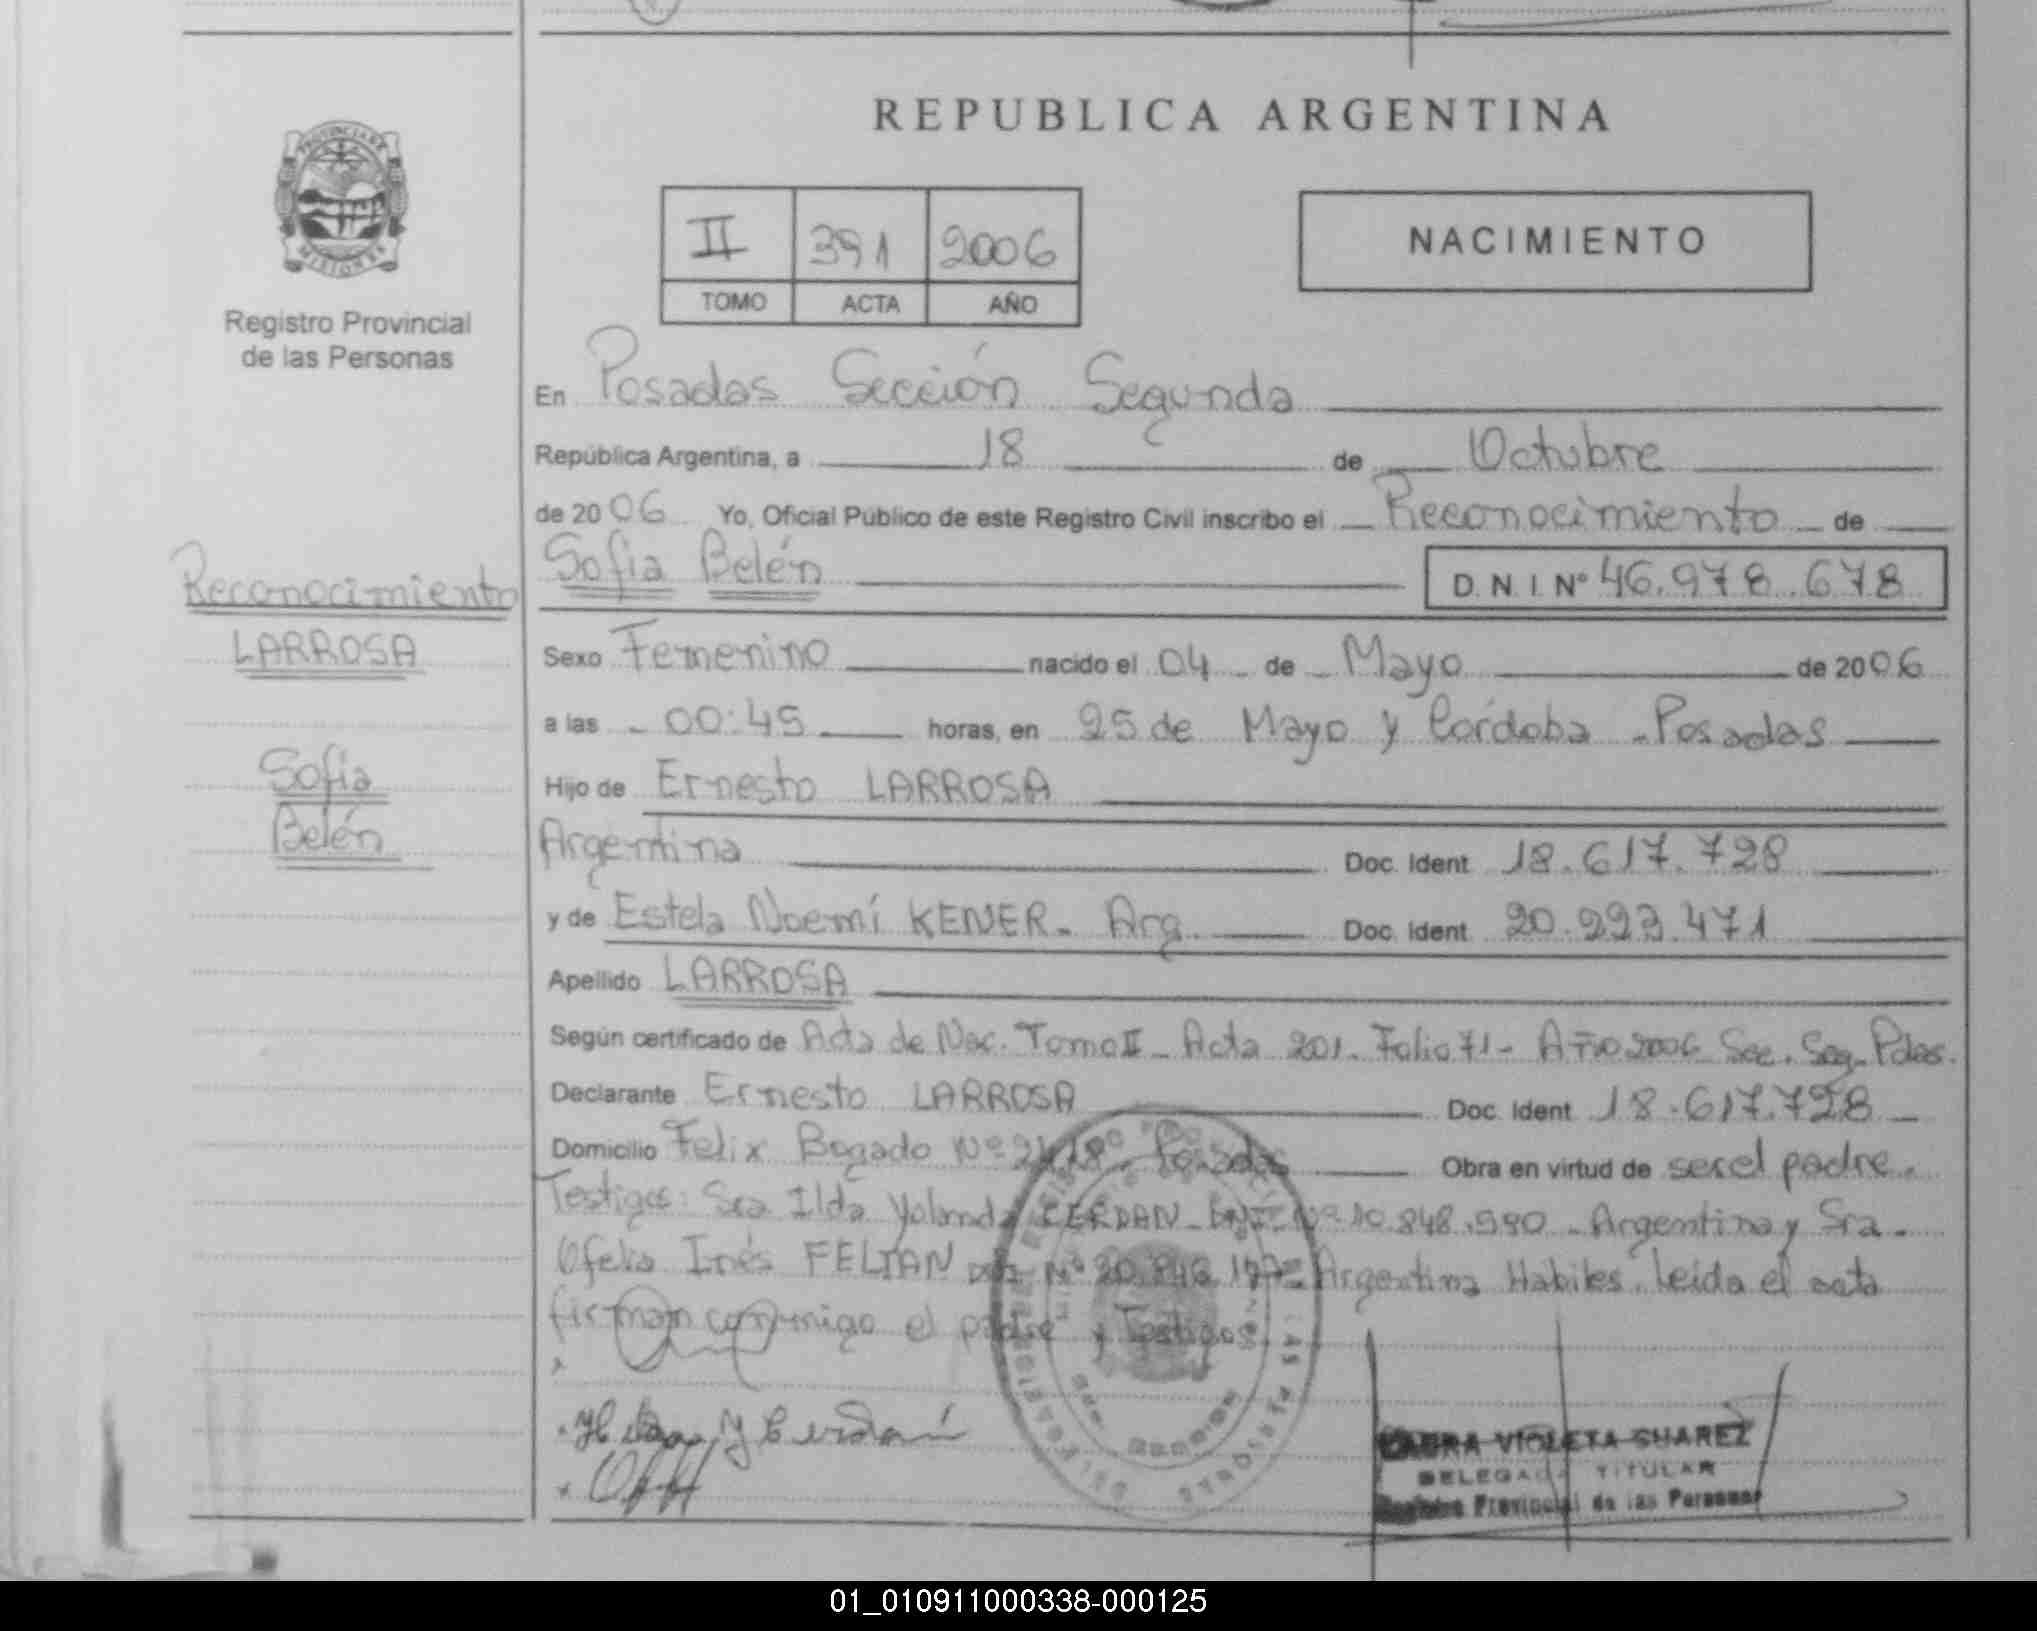 REPUBLICA ARGENTINA
PROVINCIA DE
MISIONES
Registro Provincial
de las Personas
II 391 2006
TOMO ACTA AÑO
NACIMIENTO
En Posadas Sección Segunda
República Argentina, a 18 de Octubre
de 2006 Yo, Oficial Público de este Registro Civil inscribo el Reconocimiento de
Sofia Belén D. N. I. Nº 46.978.678
Reconocimiento
LARROSA
Sofia
Belén
Sexo Femenino nacido el 04 de Mayo de 2006
a las 00:45 horas, en 25 de Mayo y Córdoba - Posadas
Hijo de Ernesto LARROSA
Argentina Doc. Ident 18.617.728
y de Estela Noemí KENER - Arg. Doc. Ident 20.993.471
Apellido LARROSA
Según certificado de Acta de Nac. Tomo II - Acta 201. Folio 71 - Año 2006 Sec. Seg. Pdas.
Declarante Ernesto LARROSA Doc. Ident 18.617.728
Domicilio Felix Bogado Nº Posadas Obra en virtud de ser el padre.
Testigos: Sra Ilda Yolanda CERDAN - Nº 10.848.990 - Argentina y Sra.
Ofelia Inés FELTAN Argentina Habiles. Leida el acta
firman conmigo el padre y Testigos
VIOLETA SUAREZ
DELEGADA TITULAR
Registro Provincial de las Personas
01_010911000338-000125